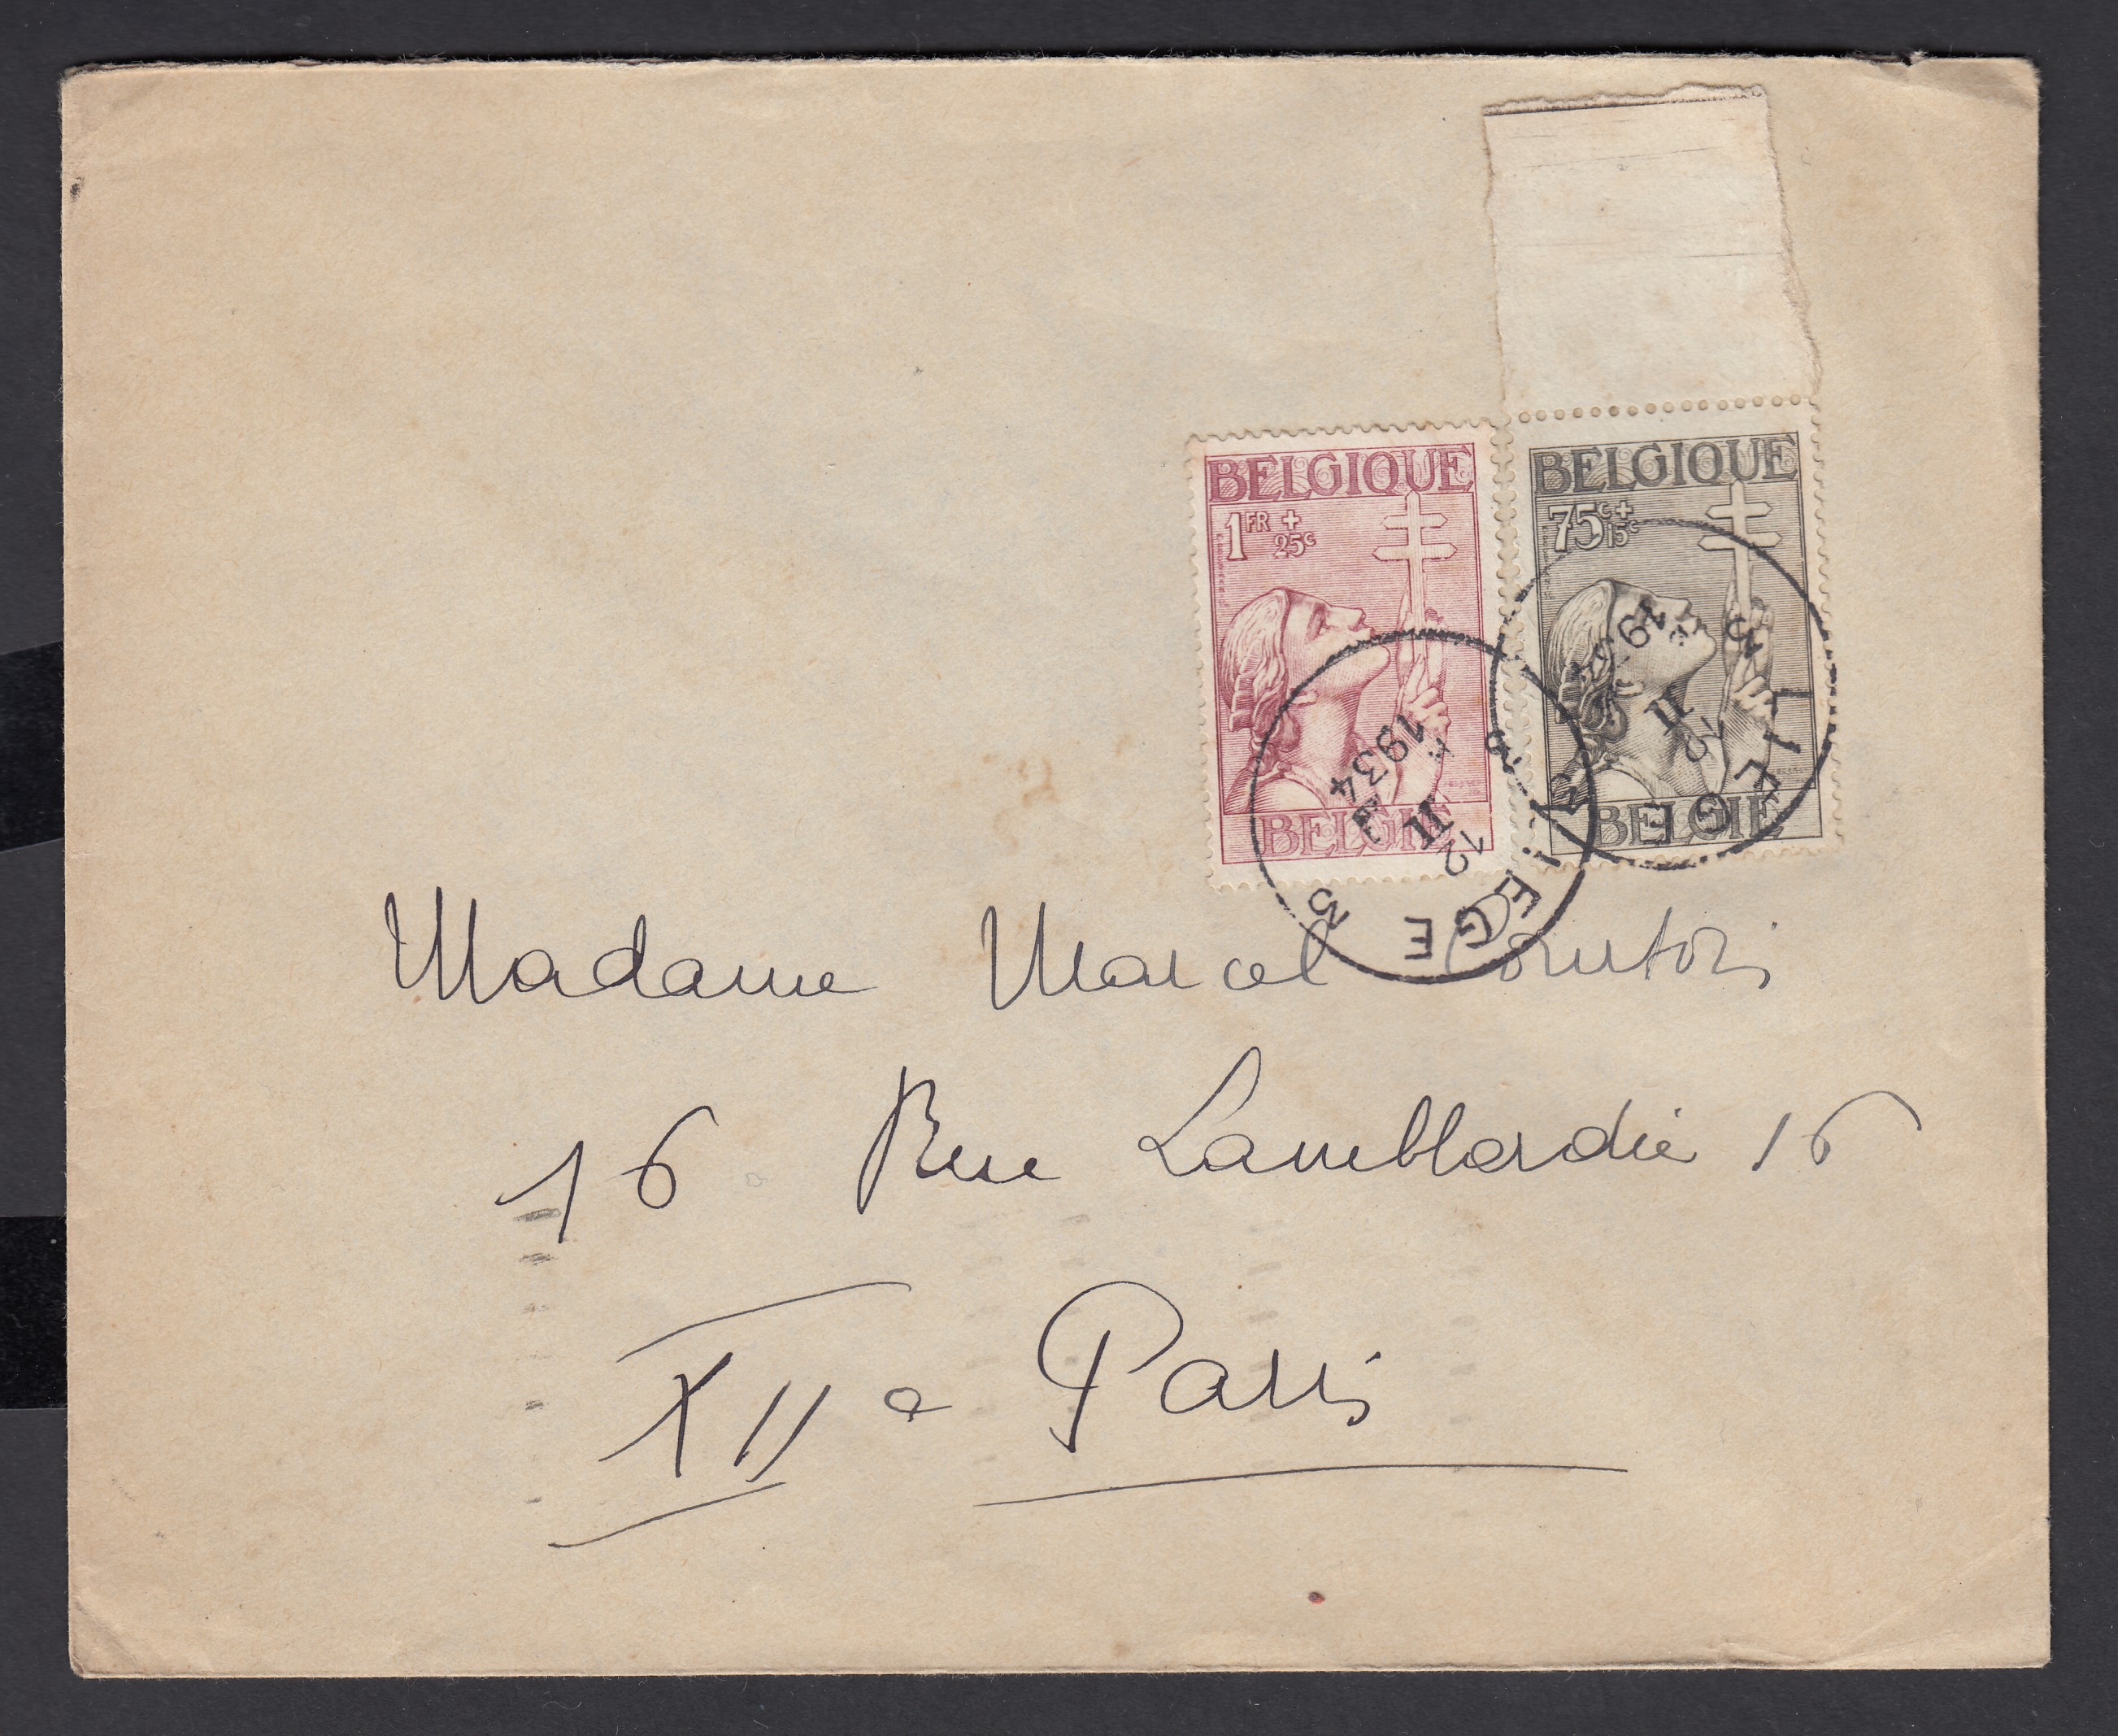 BELGIQUE
1FR + 25c
BELGIË
BELGIQUE
75c + 15c
BELGIË
LIEGE 3
12 II 1934
LIEGE
12 II 1934
Madame Marcel Courtois
16 Rue Lamblardie 16
XII e Paris